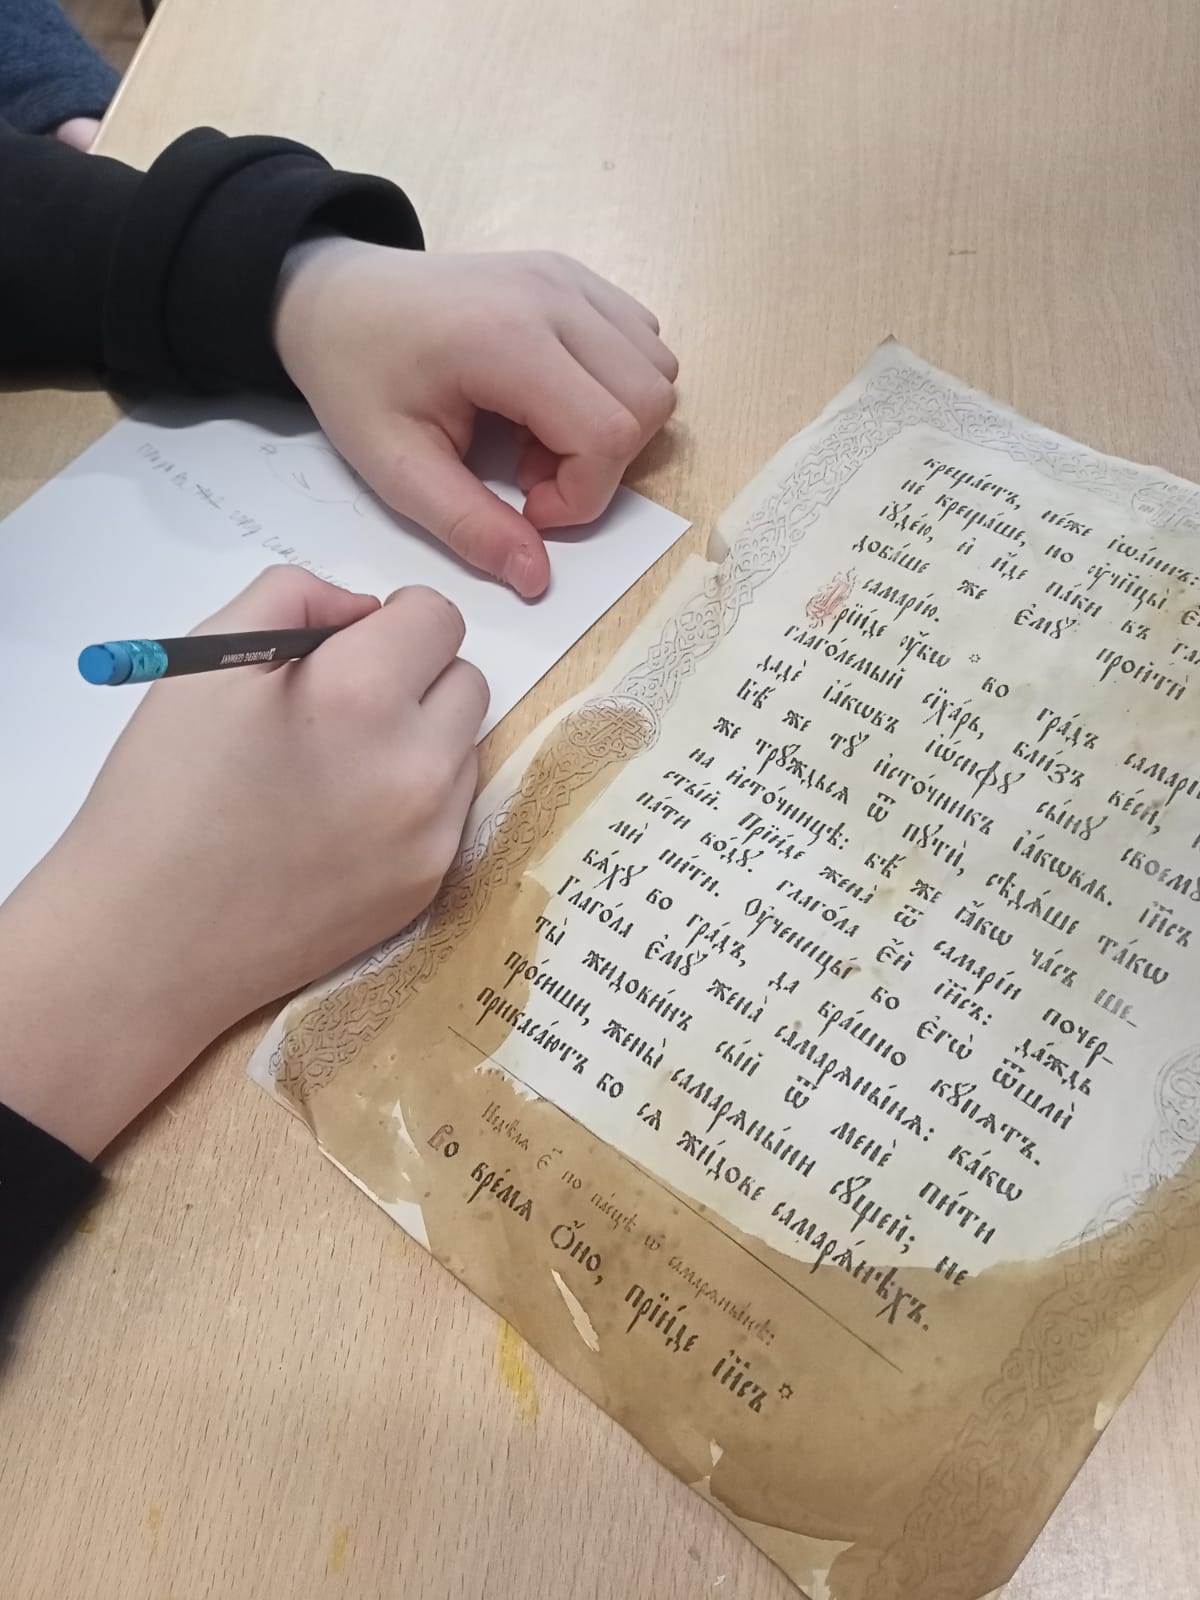 креща́етъ, не́же іѡа́ннъ:
не креща́ше, но ᲂу҆чн҃цы̀
і҆ꙋде́ю, и҆ и҆́де па́ки въ
доба́ше же є҆мꙋ̀ пройтѝ
самарі́ю.
Прїи́де ᲂу҆̀бѡ * во гра́дъ
глаго́лемый сїха́рь, бли́зъ ве́си,
дадѐ і҆а́кѡвъ і҆ѡ́сифꙋ сы́нꙋ своемꙋ̀
Бѣ́ же тꙋ̀ и҆сто́чникъ і҆а́кѡвль. і҆и҃съ
же трꙋ́ждьсѧ ѿ пꙋтѝ, сѣдѧ́ше та́кѡ
на и҆сто́чницѣ: бѣ́ же ꙗ҆́кѡ ча́съ ше_
сты́й. Прїи́де жена̀ ѿ самарі́и поче́р_
па́ти во́дꙋ. глаго́ла є҆́й і҆и҃съ: да́ждь
мѝ пи́ти. Оу҆ченицы́ бо є҆гѡ̀ ѿшлѝ
бѧ́хꙋ во гра́дъ, да бра́шно кꙋ́пѧтъ.
Глаго́ла є҆мꙋ̀ жена̀ самарѧны́нѧ: ка́кѡ
ты̀ жидови́нъ сы́й ѿ менѐ пи́ти
про́сиши, жены̀ самарѧны́ни сꙋ́щей; не
прикаса́ютъ бо сѧ жи́дове самарѧ́нѣхъ.
Недѣ́лѧ є҃ по па́сцѣ ѡ҆ самарѧны́нѣ:
Во вре́мѧ Ѻ҆́но, прїи́де і҆и҃съ *
BRAUBERG GERMANY